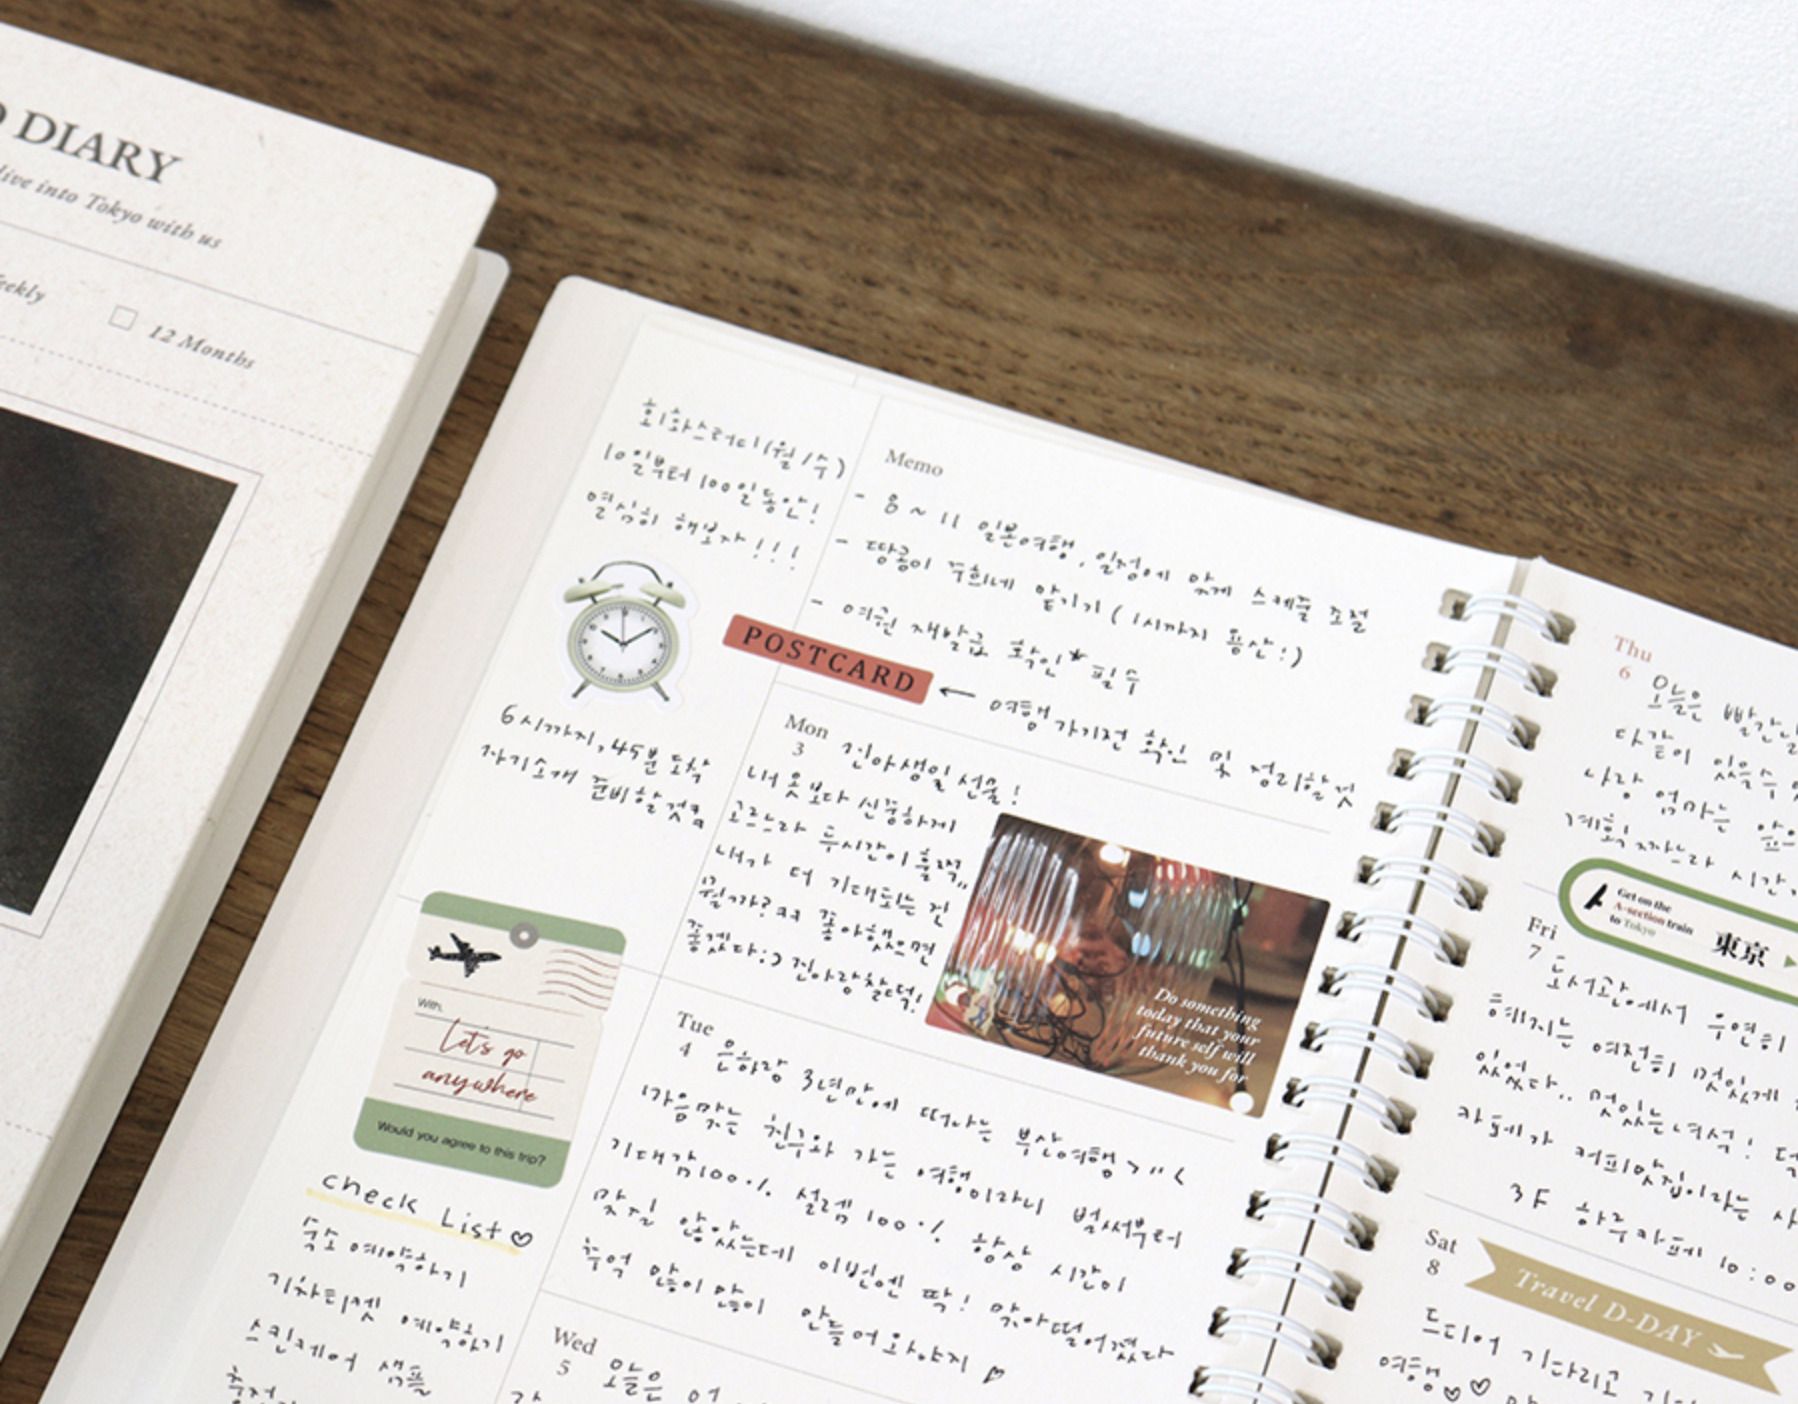 DIARY
live into Tokyo with us
12 Months
회화스터디(월/수)
10일부터 100일동안!
열심히 해보자!!!
6시까지, 45분 도착
자기소개 준비할것
With.
Let's go
anywhere
Would you agree to this trip?
check List♡
숙소 예약하기
기차티켓 예약하기
스킨케어 샘플
Memo
- 8~11 일본여행, 일정에 맞게 스케줄 조절
- 땅콩이 주희네 맡기기 (1시까지 용산!)
- 여권 재발급 확인* 필수
POSTCARD
← 여행가기전 확인 및 정리할것
Mon
3
진아생일 선물!
내 옷보다 신중하게
고르느라 두시간이 훌쩍,,
내가 더 기대되는 건
뭘까? ㅋㅋ 좋아했으면
좋겠다:) 진아랑찰떡!
Do something
today that your
future self will
thank you for
Tue
4
은하랑 3년만에 떠나는 부산여행
마음맞는 친구와 가는 여행이라니 벌써부터
기대감100% 설렘100% 항상 시간이
맞질 않았는데 이번엔 딱! 맞아떨어졌다
추억 많이많이 만들어와야지 ♡
Wed
5
오늘은
Thu
6
오늘은 빨간날
다같이 있을수
나랑 엄마는
계획짜느라 시간
Get on the
A-section train
to Tokyo
東京
Fri
7
도서관에서 우연히
혜지는 여전히 멋있게
있었다.. 멋있는녀석!
카페가 커피맛집이라는
3F 하루카페 10:00
Sat
8
Travel D-DAY
드디어 기다리고
여행♡♡